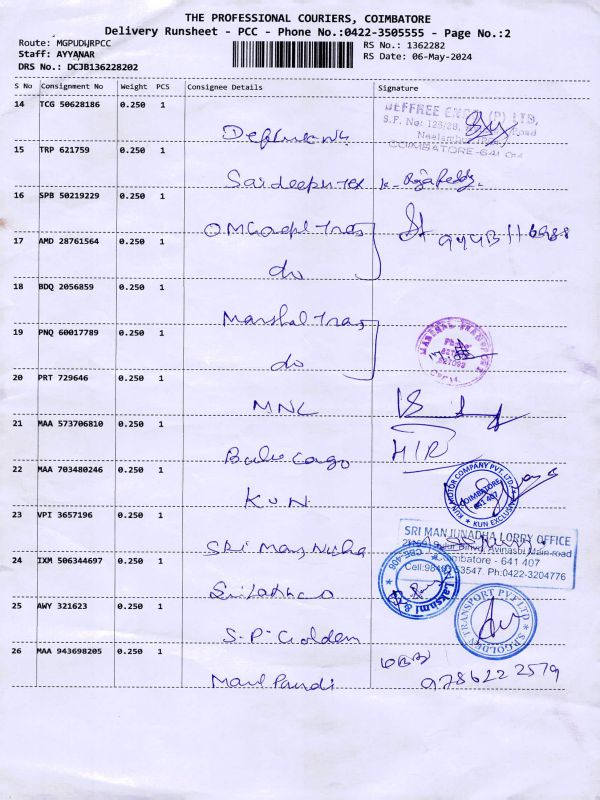 THE PROFESSIONAL COURIERS, COIMBATORE
Delivery Runsheet - PCC - Phone No.:0422-3505555 - Page No.:2
Route: MGPUDURPCC
Staff: AYYANAR
DRS No.: DCJB136228202
RS No.: 1362282
RS Date: 06-May-2024
S No Consignment No Weight PCS Consignee Details Signature
14 TCG 50628186 0.250 1
DEFFREE ENGG (P) LTD,
S.F. No: Road
COIMBATORE-641
15 TRP 621759 0.250 1
Sandeepu Tex Raja Reddy.
16 SPB 50219229 0.250 1
17 AMD 28761564 0.250 1
do
18 BDQ 2056859 0.250 1
Marshal Trans
19 PNQ 60017789 0.250 1
do
20 PRT 729646 0.250 1
MNC
21 MAA 573706810 0.250 1
22 MAA 703480246 0.250 1
KUN
KUN MOTOR COMPANY PVT. LTD.
COIMBATORE
641 407
KUN EXCLUSIVE
23 VPI 3657196 0.250 1
SRI MANJUNADHA LORRY OFFICE
Avinasi Main road
Coimbatore - 641 407
Ph:0422-3204776
24 IXM 506344697 0.250 1
Lakshmi &
25 AWY 321623 0.250 1
S.P. Golden
S.P.GOLDEN TRANSPORT PVT LTD
26 MAA 943698205 0.250 1
9786222579